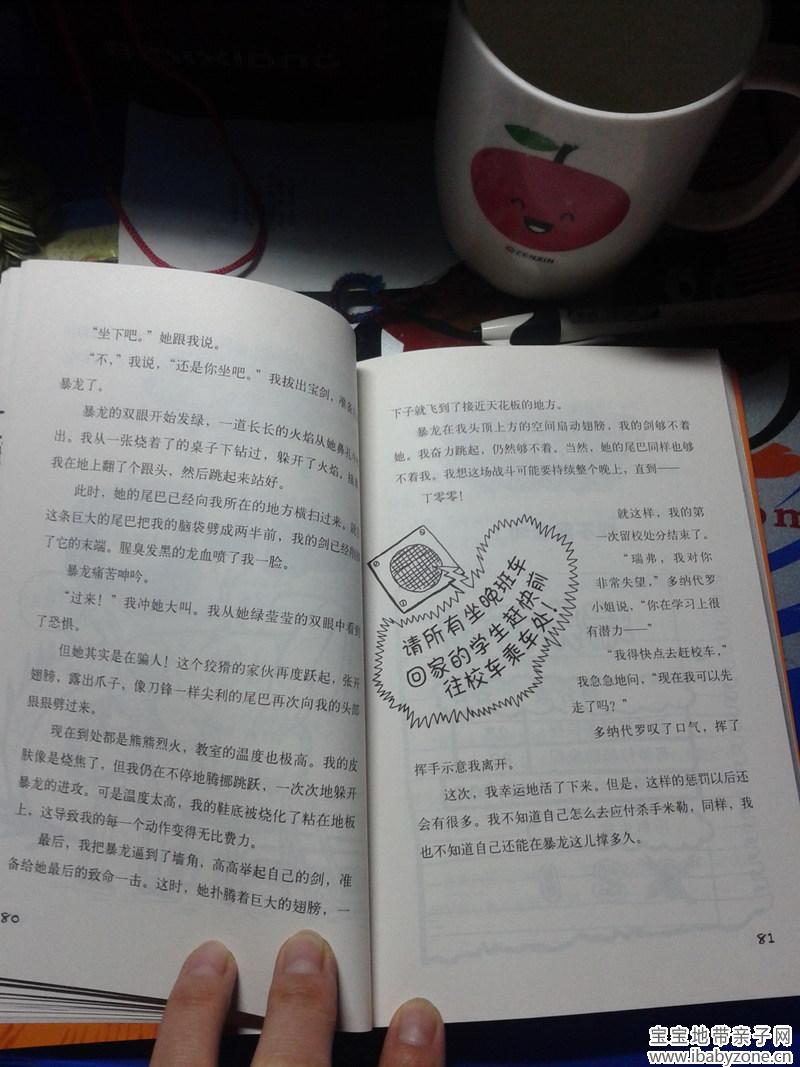 ZENXIN
“坐下吧。”她跟我说。
“不，”我说，“还是你坐吧。”我拔出宝剑，准备
暴龙了。
暴龙的双眼开始发绿，一道长长的火焰从她鼻孔
出。我从一张烧着了的桌子下钻过，躲开了火焰，接
我在地上翻了个跟头，然后跳起来站好。
此时，她的尾巴已经向我所在的地方横扫过来。就
这条巨大的尾巴把我的脑袋劈成两半前，我的剑已经
了它的末端。腥臭发黑的龙血喷了我一脸。
暴龙痛苦呻吟。
“过来！”我冲她大叫。我从她绿莹莹的双眼中看到
了恐惧。
但她其实是在骗人！这个狡猾的家伙再度跃起，张开
翅膀，露出爪子，像刀锋一样尖利的尾巴再次向我的头部
狠狠劈过来。
现在到处都是熊熊烈火，教室的温度也极高。我的皮
肤像是烧焦了，但我仍在不停地腾挪跳跃，一次次地躲开
暴龙的进攻。可是温度太高，我的鞋底被烧化了粘在地板
上，这导致我的每一个动作变得无比费力。
最后，我把暴龙逼到了墙角，高高举起自己的剑，准
备给她最后的致命一击。这时，她扑腾着巨大的翅膀，一
80
下子就飞到了接近天花板的地方。
暴龙在我头顶上方的空间扇动翅膀，我的剑够不着
她。我奋力跳起，仍然够不着。当然，她的尾巴同样也够
不着我。我想这场战斗可能要持续整个晚上，直到——
丁零零！
请所有坐晚班车
回家的学生赶快前
往校车乘车处！
就这样，我的第
一次留校处分结束了。
“瑞弗，我对你
非常失望，”多纳代罗
小姐说，“你在学习上很
有潜力——”
“我得快点去赶校车，”
我急急地问，“现在我可以先
走了吗？”
多纳代罗叹了口气，挥了
挥手示意我离开。
这次，我幸运地活了下来。但是，这样的惩罚以后还
会有很多。我不知道自己怎么去应付杀手米勒，同样，我
也不知道自己还能在暴龙这儿撑多久。
81
宝宝地带亲子网
www.ibabyzone.cn